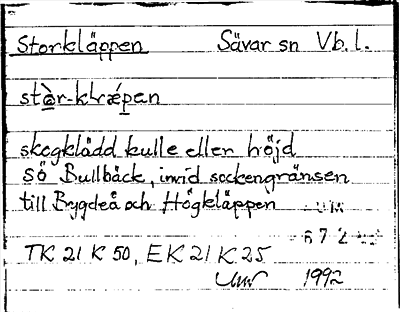 Storkläppen Sävar sn Vb. l.
skogklädd kulle eller höjd
sö Bullbäck, invid sockengränsen
till Bygdeå och Högkläppen
TK 21 K 50, EK 21 K 25
1992